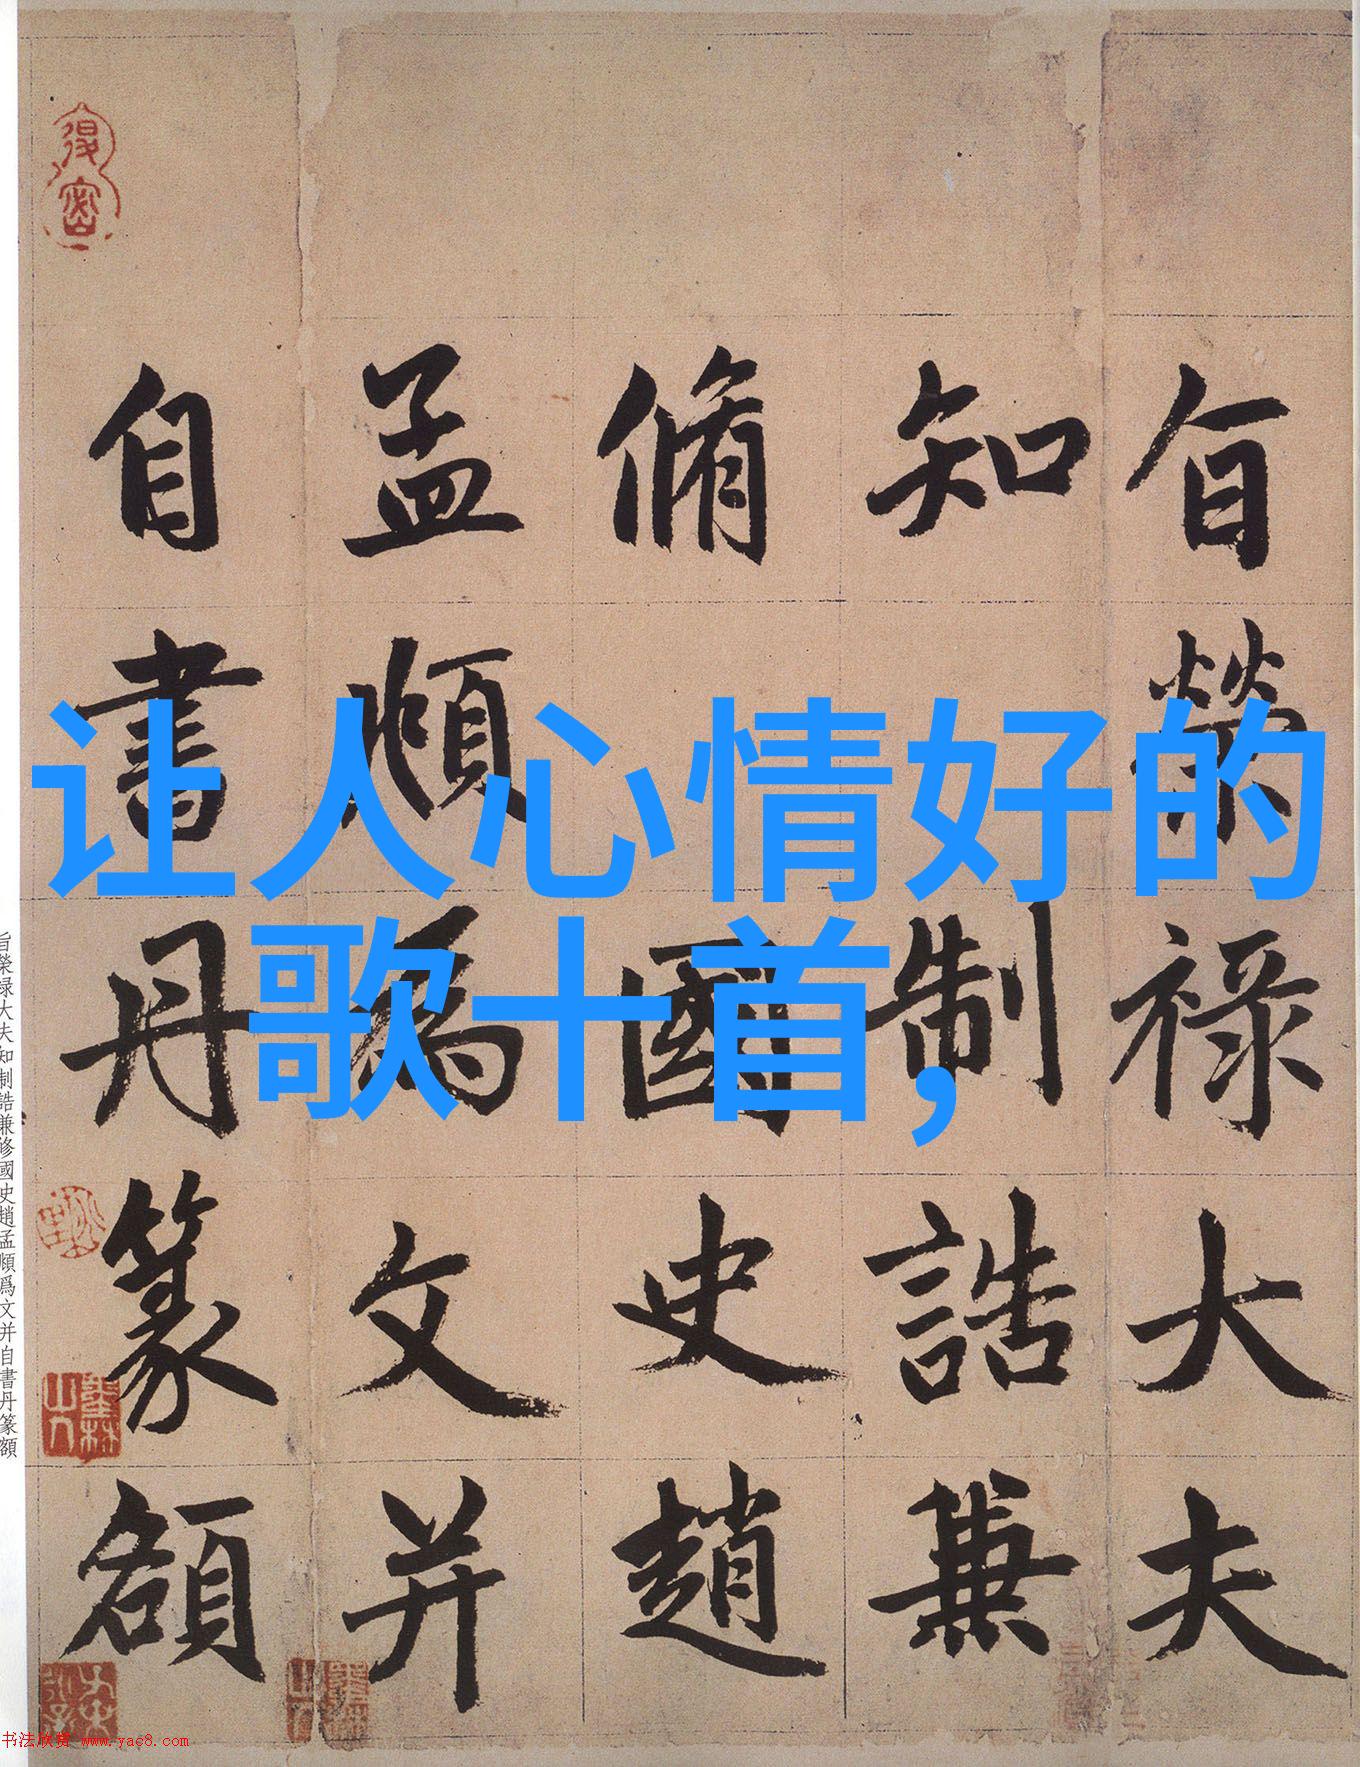 让人心情好的
歌十首，
旨榮祿大夫
知制誥兼
脩國史趙
孟頫為文并
自書丹篆額
旨榮禄大夫知制誥兼修國史趙孟頫爲文并自書丹篆額
书法欣赏 www.yac8.com